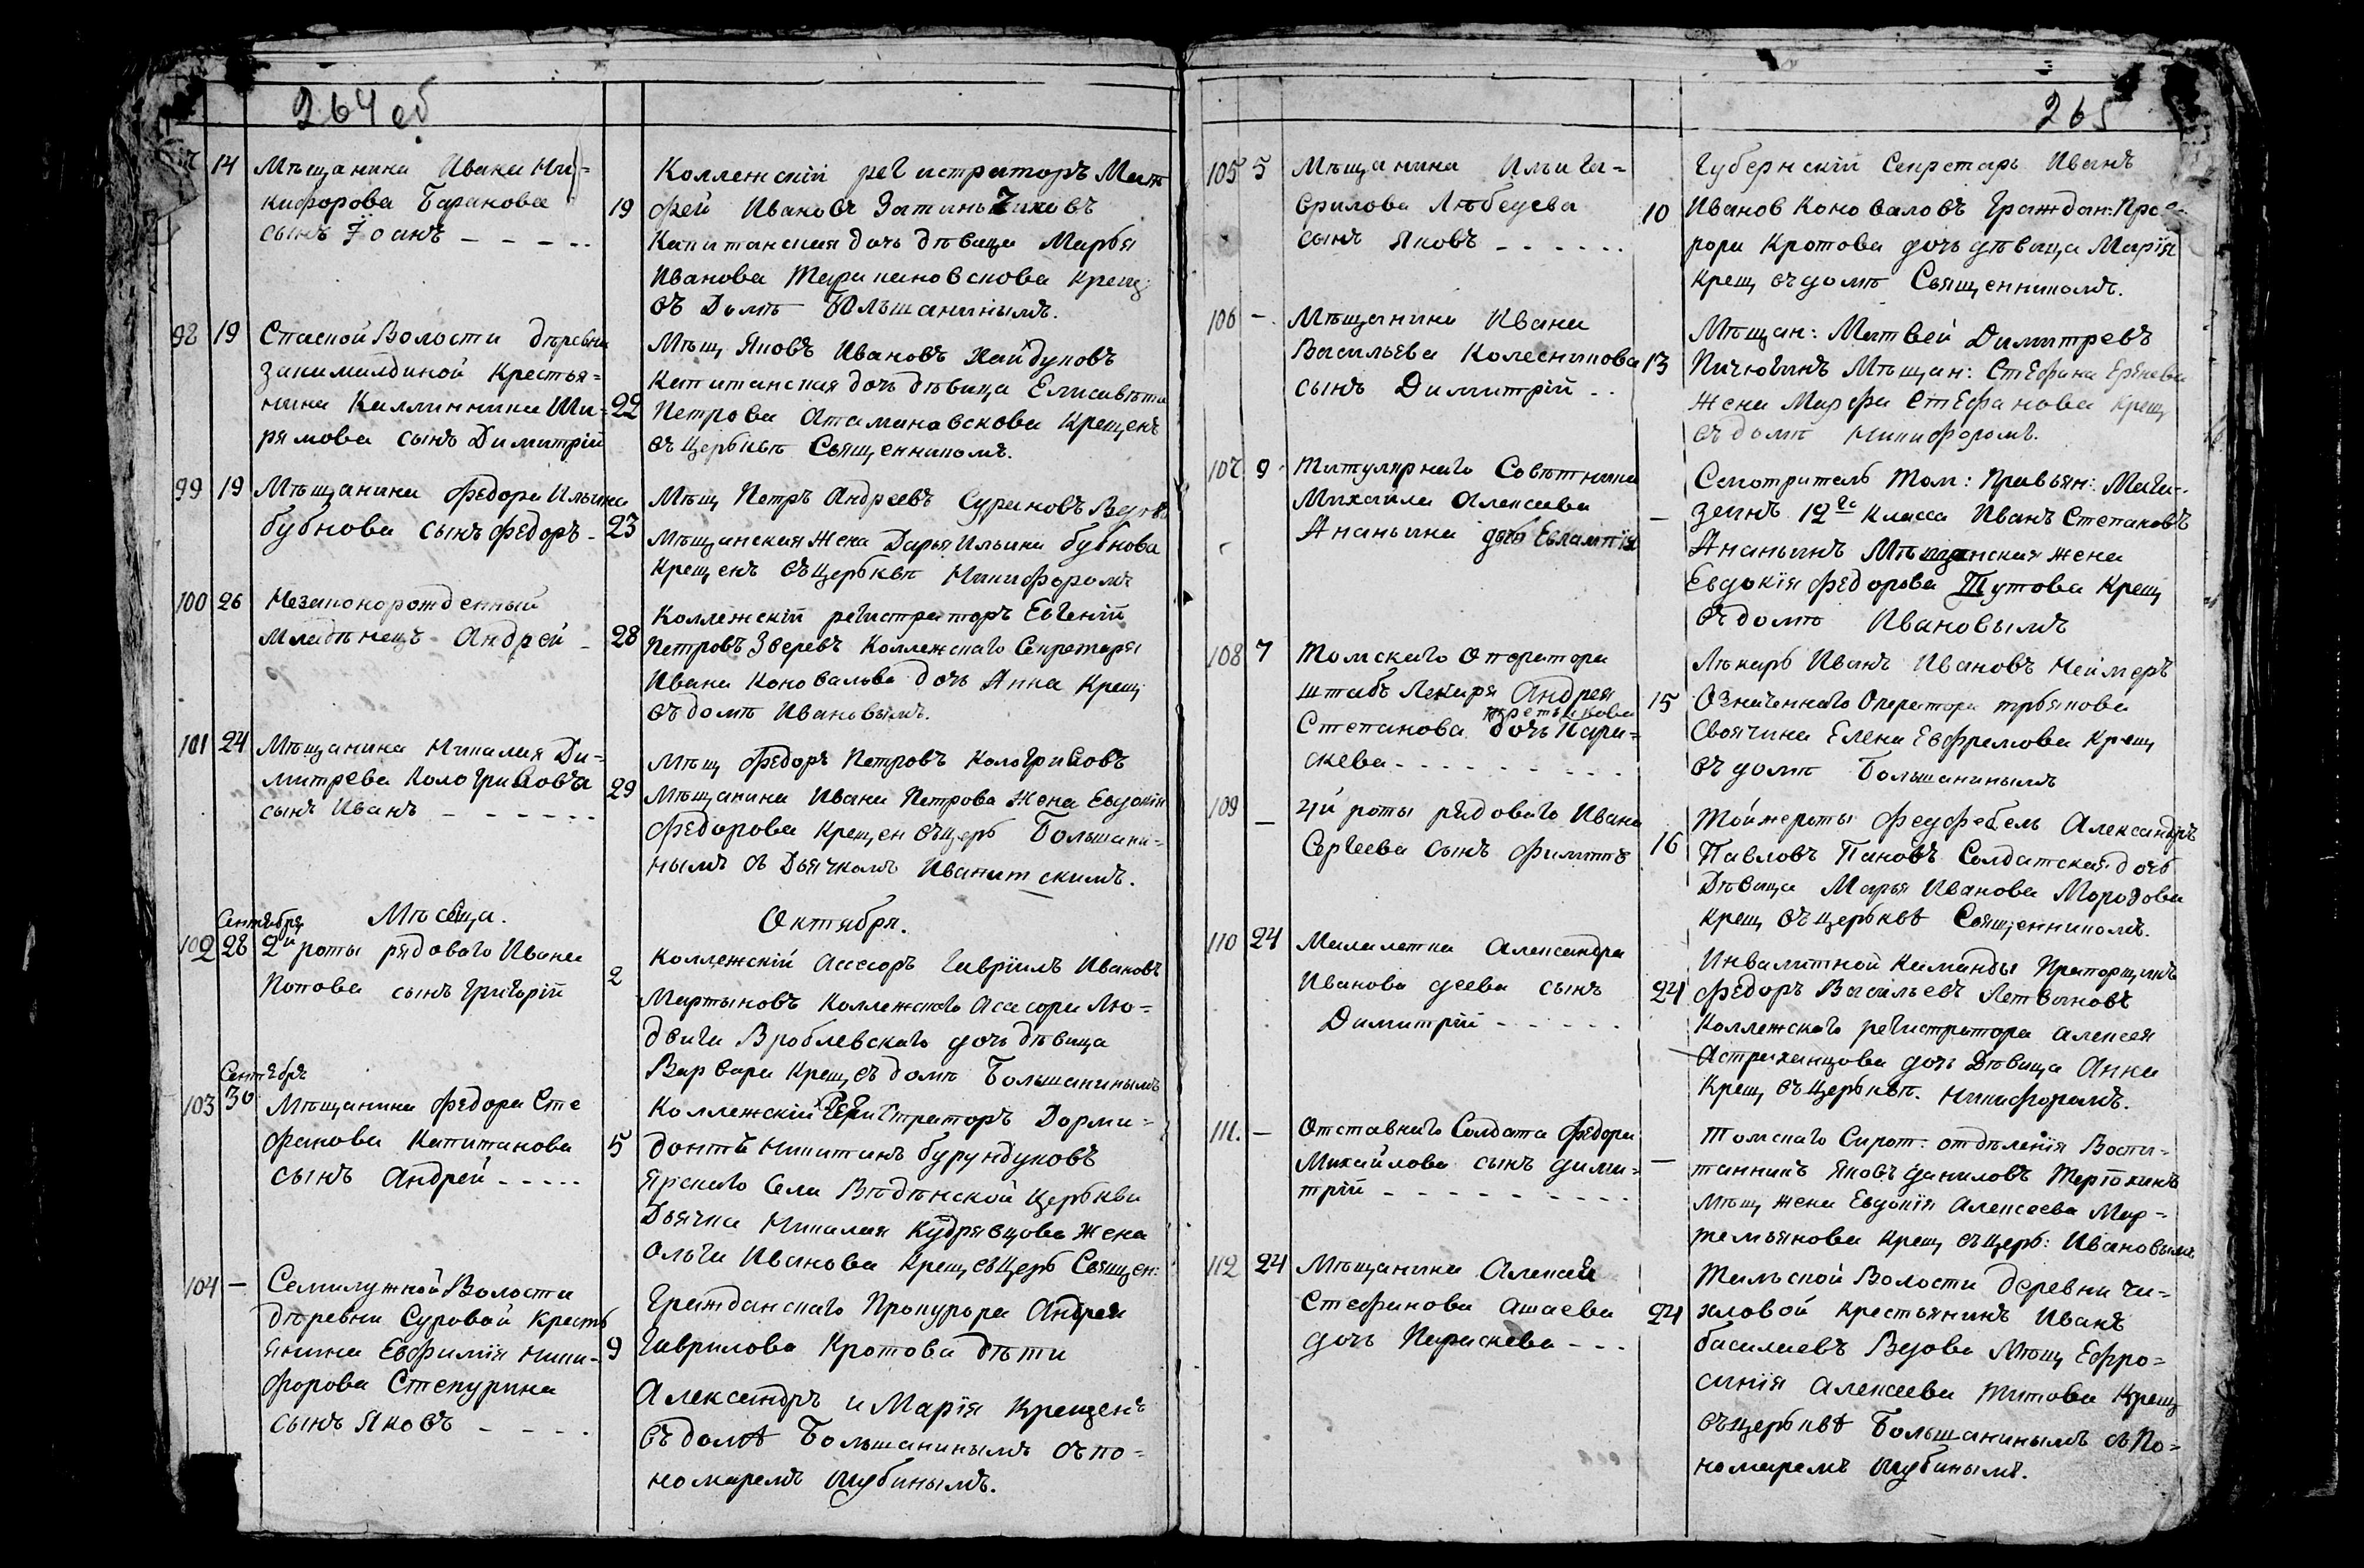 264 об
14 Мѣщанина Ивана Ни-
кифорова Баранова
сынъ Іоанъ - - - - -
19
Коллежскій регистраторъ Мат
фей Ивановъ
Капитанская дочь дѣвица Марья
Иванова Таракановскова крещ
въ Домѣ Большанинымъ.
98 19 Спаской Волости дѣревни
крестья-
нина Каллинника Ши-
рямова сынъ Димитрій
22
Мѣщ Яковъ Ивановъ Хайдуковъ
Капитанская дочь дѣвица Елисавѣта
Петрова Атамановскова Крещенъ
въ церьквѣ Священникомъ.
99 19 Мѣщанина Федора Ильина
бубнова сынъ федоръ -
23
Мѣщ Петръ Андреевъ Суриковъ
Мѣщанская жена Дарья Ильина бубнова
Крещенъ въ Церьквѣ Никифоромъ
100 26 Незаконорожденный
Младѣнецъ Андрей -
28
Коллежскій регистраторъ Евгеній
Петровъ Зверевъ Коллежскаго Секретаря
Ивана Коновалова дочь Анна Крещ
въ домѣ Ивановымъ.
101 24 Мѣщанина Николая Ди-
митрева Кологривовъа
сынъ Иванъ - - - - - -
29
Мѣщ Федоръ Петровъ Кологривовъ
Мѣщанина Ивана Петрова Жена Евдокія
Федорова Крещен въ церь Большани-
нымъ съ Дьячкомъ Иванитскимъ.
Мѣсяца. Октября.
Сентября
102 28 2й роты рядоваго Ивана
Попова сынъ Григорій
2
Коллежскій Ассесоръ Гавріилъ Ивановъ
Мартыновъ Коллежскаго Асасора Лю-
двига Вроблевскаго дочь дѣвица
Варвара Крещ въ домѣ Большанинымъ
Сентября
103 30 Мѣщанина Федора Сте
фанова Капитанова
сынъ Андрей - - - - -
5
Коллежскій Регистраторъ Дорми-
донтъ Никитинъ бурундуковъ
Ярскаго Села Введѣнской церькви
Дьячка Николая Кудрявцова Жена
Ольга Иванова Крещ въ Церь Священ:
104 — Семилужной Волости
дѣревни Суровой Кресть
янина Евфимія Ники-
форова Степурина
сынъ Яковъ - - - -
9
Гражданскаго Прокурора Андрея
Гаврилова Кротова дѣти
Александръ и Марія Крещенъ
въ домѣ Большанинымъ съ по-
номаремъ Шубинымъ.
265
105 5 Мѣщанина Ильи Га-
врилова Любецева
сынъ Яковъ - - - - - -
10
Губернскій Секретарь Иванъ
Иванов Коноваловъ Граждан: Про
рора Кротова дочь дѣвица Марія
Крещ въ домѣ Священникомъ.
106 — Мѣщанина Ивана
Васильева Колесникова
сынъ Димитрій - -
13
Мѣщан: Матвей Димитревъ
Пичюгинъ Мѣщан: Стефана
жена Марфа Стефанова Крещ
въ домѣ Никифоромъ.
107 9 Титулярнаго Совѣтника
Михаила Алексеева
Ананьина дочь Евлампія
—
Смотритель Том: Правьян: Мага-
зеинъ 12го Класса Иванъ Степановъ
Ананьинъ Мѣщанская жена
Евдокія Федорова Тутова Крещ
въ домѣ Ивановымъ
108 7 Томскаго Оператора
штабъ Лекаря Андрея
Степанова третьякова дочь Пара-
скева - - - - - - - -
15
Лѣкарь Иванъ Ивановъ Неймеръ
Означеннаго Оператора трьякова
Своячина Елена Евфремова Крещ
въ домѣ Большанинымъ
109 — 4й роты рядоваго Ивана
Сергеева сынъ Филиппъ
16
Тойже роты Федфебель Александръ
Павловъ Пановъ Солдатская дочь
Дѣвица Марья Иванова Морозова
крещ въ церьквѣ Священникомъ.
110 24 Малалетка Александра
Иванова деева сынъ
Димитрій - - - - -
24
Инвалитной Каманды Праторщикъ
Федоръ Васильевъ Летвиновъ
Коллежскаго регистратора Алексея
Астраханцова дочь Дѣвица Анна
Крещ въ Церьквѣ. Никифоромъ.
111. — Отставнаго Солдата Федора
Михайлова сынъ дими-
трій - - - - - - - - -
—
Томскаго Сирот: отдѣленія Воспи-
танникъ Яковъ даниловъ Тертюкинъ
Мѣщ жена Евдокія Алексеева Мар-
темьянова Крещ въ церь: Ивановымъ
112 24 Мѣщанина Алексѣй
Стефанова Ашаева
дочь Параскева - - -
24
Тальской Волости деревни Чи-
хловой крестьянинъ Иванъ
басилиевъ Мѣщ Ефро-
синія Алексеева Титова Крещ
въ церьквѣ Большанинымъ съ По-
номаремъ Шубинымъ.